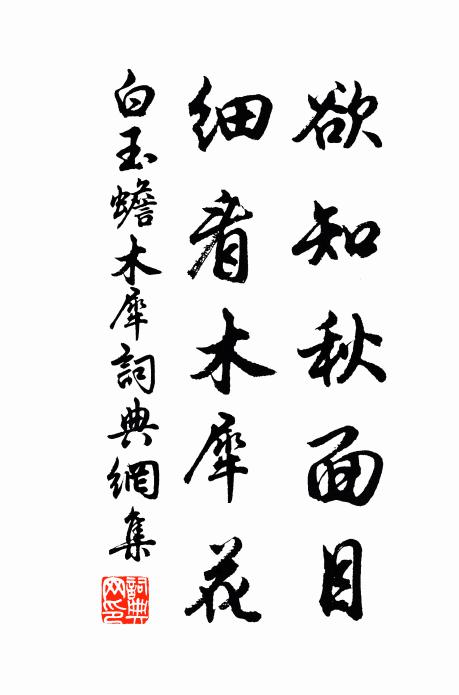 欲知秋面目
细看木犀花
白玉蟾木犀詞典網集
詞典网印